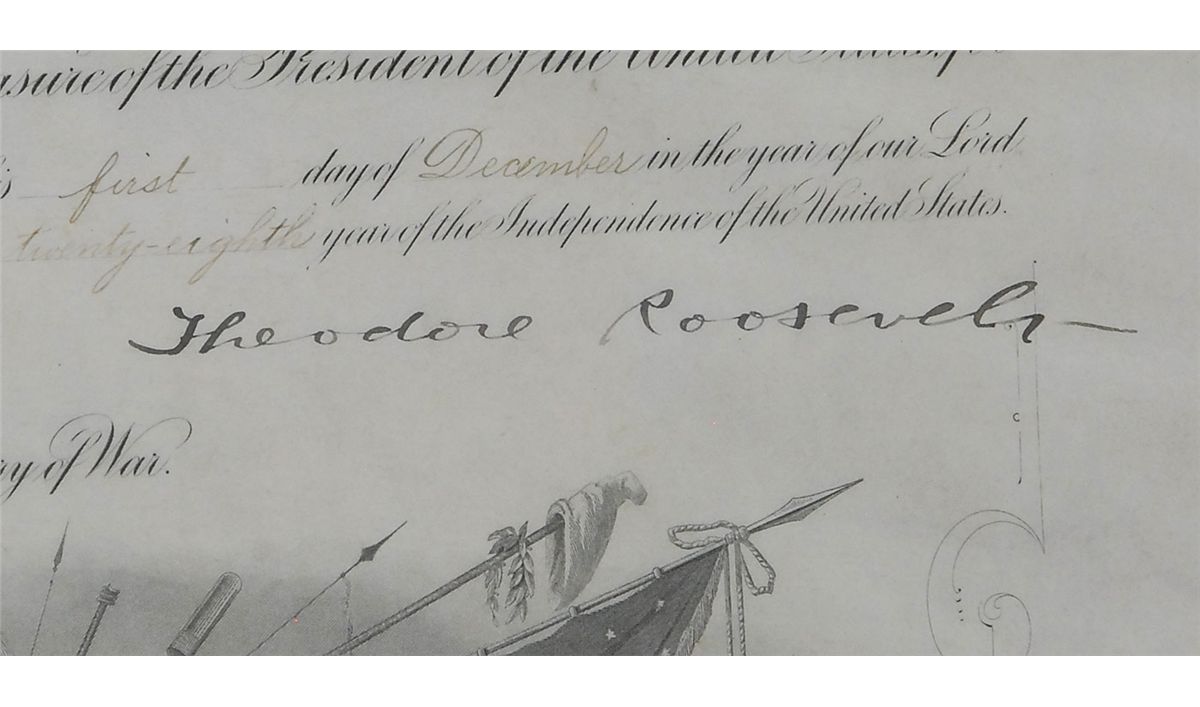 asure of the President of the United States, for
is first day of December in the year of our Lord
twenty-eighth year of the Independence of the United States.
Theodore Roosevelt
ry of War.